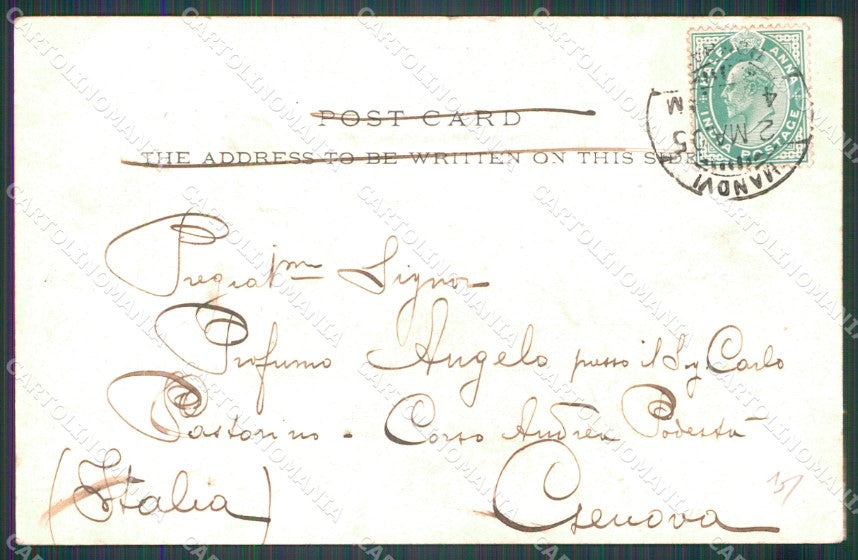 POST CARD
THE ADDRESS TO BE WRITTEN ON THIS SIDE
HALF ANNA
INDIA POSTAGE
MANDVI
2 MA 05
Pregiat.mo Signor
Profumo Angelo presso il Sig. Carlo
Pastorino - Corso Andrea Podestà
(Italia) Genova
15/
CARTOLINOMANIA